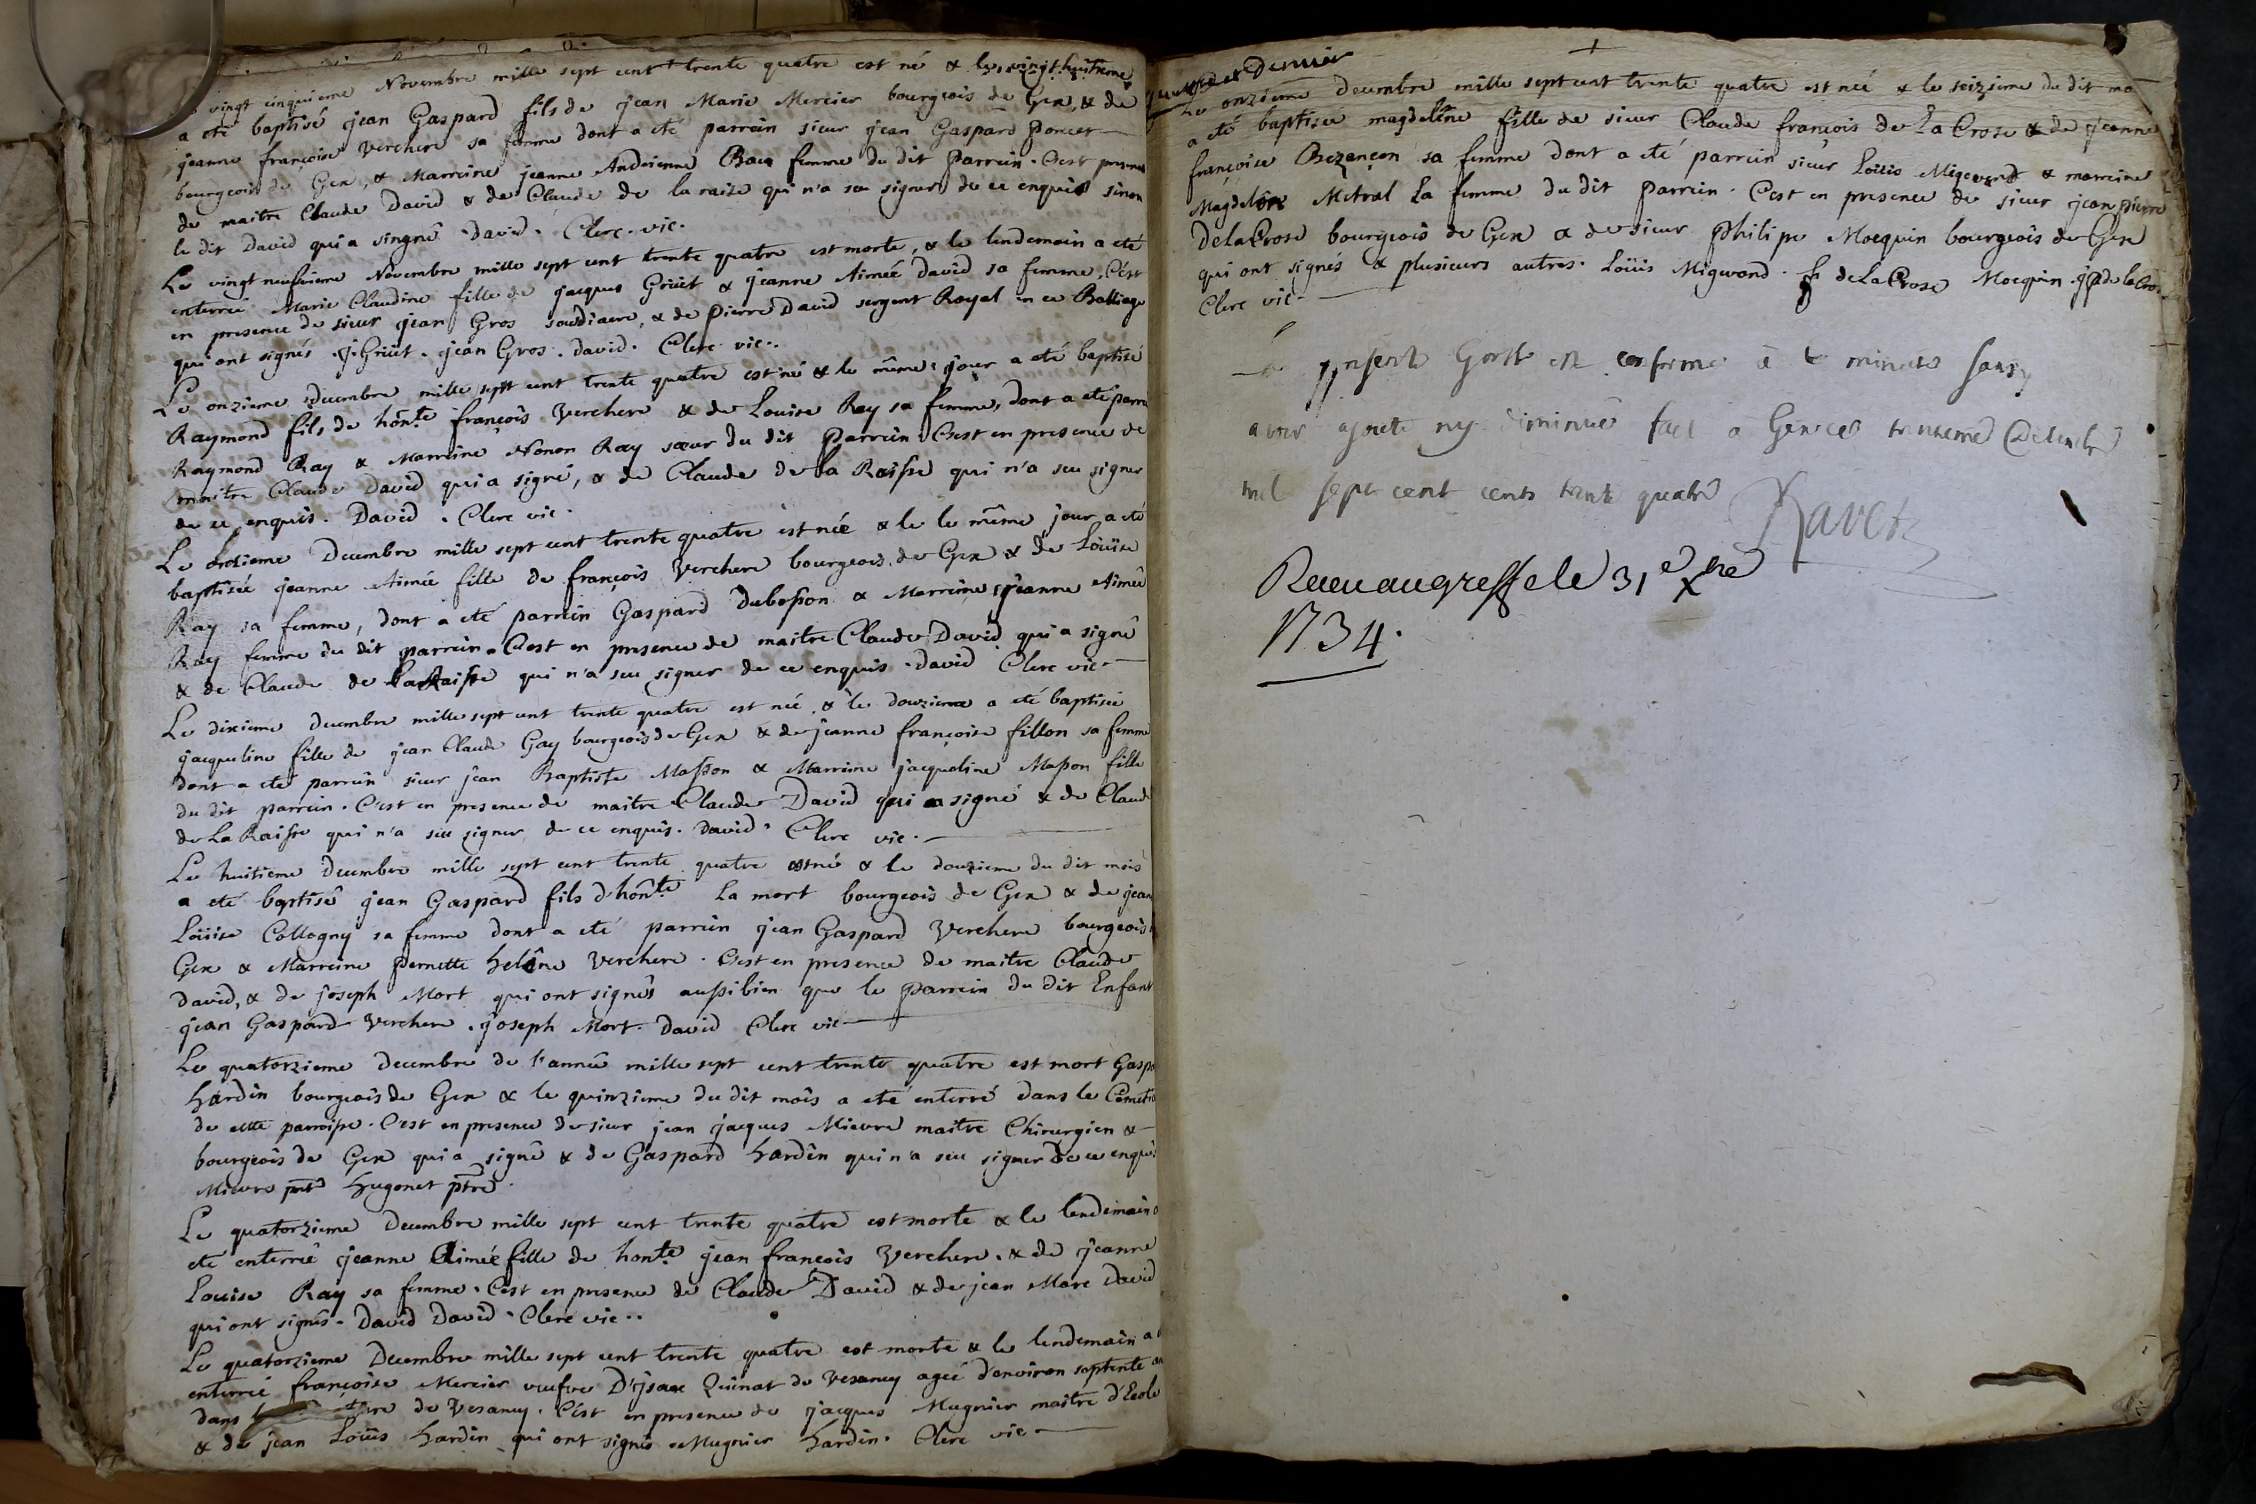 vingt cinquieme Novembre mille sept cent trente quatre est né & le vingt huitieme
a eté baptisé jean Gaspard fils de jean Marie Mercier bourgeois de Gex, & de
jeanne françoise Verchere sa femme dont a eté parrein sieur jean Gaspard Poncet
bourgeois de Gex, & Marreine jeanne Andrienne femme du dit Parrein. C'est
de maitre Claude David & de Claude de la raise qui n'a seu signer de ce enquis sinon
le dit David qui a singné. David. Clerc. vic.
Le vingt neufvieme Novembre mille sept cent trente quatre est morte, & le lendemain a eté
enterreé Marie Claudine fille de jacques Grüet & jeanne Aimeé David sa femme, C'est
en presence de sieur jean Gros soudiacre, & de Pierre David sergent Royal en ce Balliage
qui ont signés. J. Grüet. jean Gros. David. Clerc vic..
Le onzieme Decembre mille sept cent trente quatre est né & le même jour a eté baptisé
Raymond fils de hon.te françois Verchere & de Louise Ray sa femme, dont a eté parre
Raymond Ray & Marreine Nonon Ray sœur du dit Parrein. C'est en presence de
maitre Claude David qui a signé, & de Claude de la Raisse qui n'a seu signer
de ce enquis. David. Clerc vic.
Le Decembre mille sept cent trente quatre est née & le le même jour a eté
baptisée jeanne Aimée fille de françois Verchere bourgeois de Gex & de Loüise
Ray sa femme, dont a eté parrein Gaspard Dubosson & Marreine jeanne Aimeé
Ray femme du dit parrein. C'est en presence de maitre Claude David qui a signé
& de Claude de la Raisse qui n'a seu signer de ce enquis. David Clerc vic
Le dixieme decembre mille sept cent trente quatre est neé, & le douzieme a eté baptisée
jacqueline fille de jean Claude Gay bourgeois de Gex & de jeanne françoise fillon sa femme
dont a eté parrein sieur jean Baptiste Masson & Marreine jacqueline Masson fille
du dit parrein. C'est en presence de maitre Claude David qui a signé & de Claude
de La Raisse qui n'a seu signer de ce enquis. David. Clerc vic.
Le huitieme Decembre mille sept cent trente quatre est né & le douzieme du dit mois
a eté baptisé jean Gaspard fils d'hon.te La mort bourgeois de Gex & de jean
Loüise Collogny sa femme dont a eté parrein jean Gaspard Verchere bourgeois
Gex & Marreine pernette helêne Verchere. C'est en presence de maitre Claude
David, & de joseph Mort qui ont signés aussibien que le Parrein du dit Enfant
jean Gaspard Verchere. joseph Mort. David Clerc vic
Le quatorzieme decembre de l'anneé mille sept cent trente quatre est mort Gasp
hardin bourgeois de Gex & le quinzieme du dit mois a eté enterré dans le Cimeti
de cette parroisse. C'est en presence de sieur jean jacques Mievre maitre Chirurgien &
bourgeois de Gex qui a signé & de Gaspard hardin qui n'a seu signer de ce enqui
Mievre pnt hugonet ptre.
Le quatorzieme Decembre mille sept cent trente quatre est morte & le lendemain a
eté enterreé jeanne Aimée fille de hon.te jean françois Verchere, & de jeanne
Louise Ray sa femme. C'est en presence de Claude David & de jean Marc David
qui ont signés. David David. Clerc vic..
Le quatorzieme Decembre mille sept cent trente quatre est morte & le lendemain a
enterreé françoise Mercier veufve D'ysaac Quinat de Vesancy ageé d'environ septente an
dans de Vesancy. C'est en presence de jacques Mugnier maitre d'Ecole
& de jean Loüis hardin qui ont signés Mugnier hardin. Clerc vic
Dernier
Le onzieme Decembre mille sept cent trente quatre est neé & le seizieme du dit mo
a eté baptiseé magdelêne fille de sieur Claude françois de La Crose & de jeanne
françoise Bezançon sa femme dont a eté parrein sieur Loüis Migevend & marreine
Magdelêne Metral la femme du dit Parrein. C'est en presence de sieur jean pierre
De la Crose bourgeois de Gex & de sieur Philipe Mocquin bourgeois de Gex
qui ont signés & plusieurs autres. Loüis Migevand. de La Crose Mocquin. jp de la Cros
Clerc vic
present est conforme a minute sans y
avoir ajouté ny diminué fait a Gex ce trentieme Decembre
mil sept cent cents trente quatre
Ravet
Receu au greffe le 31e Xbre
1734.